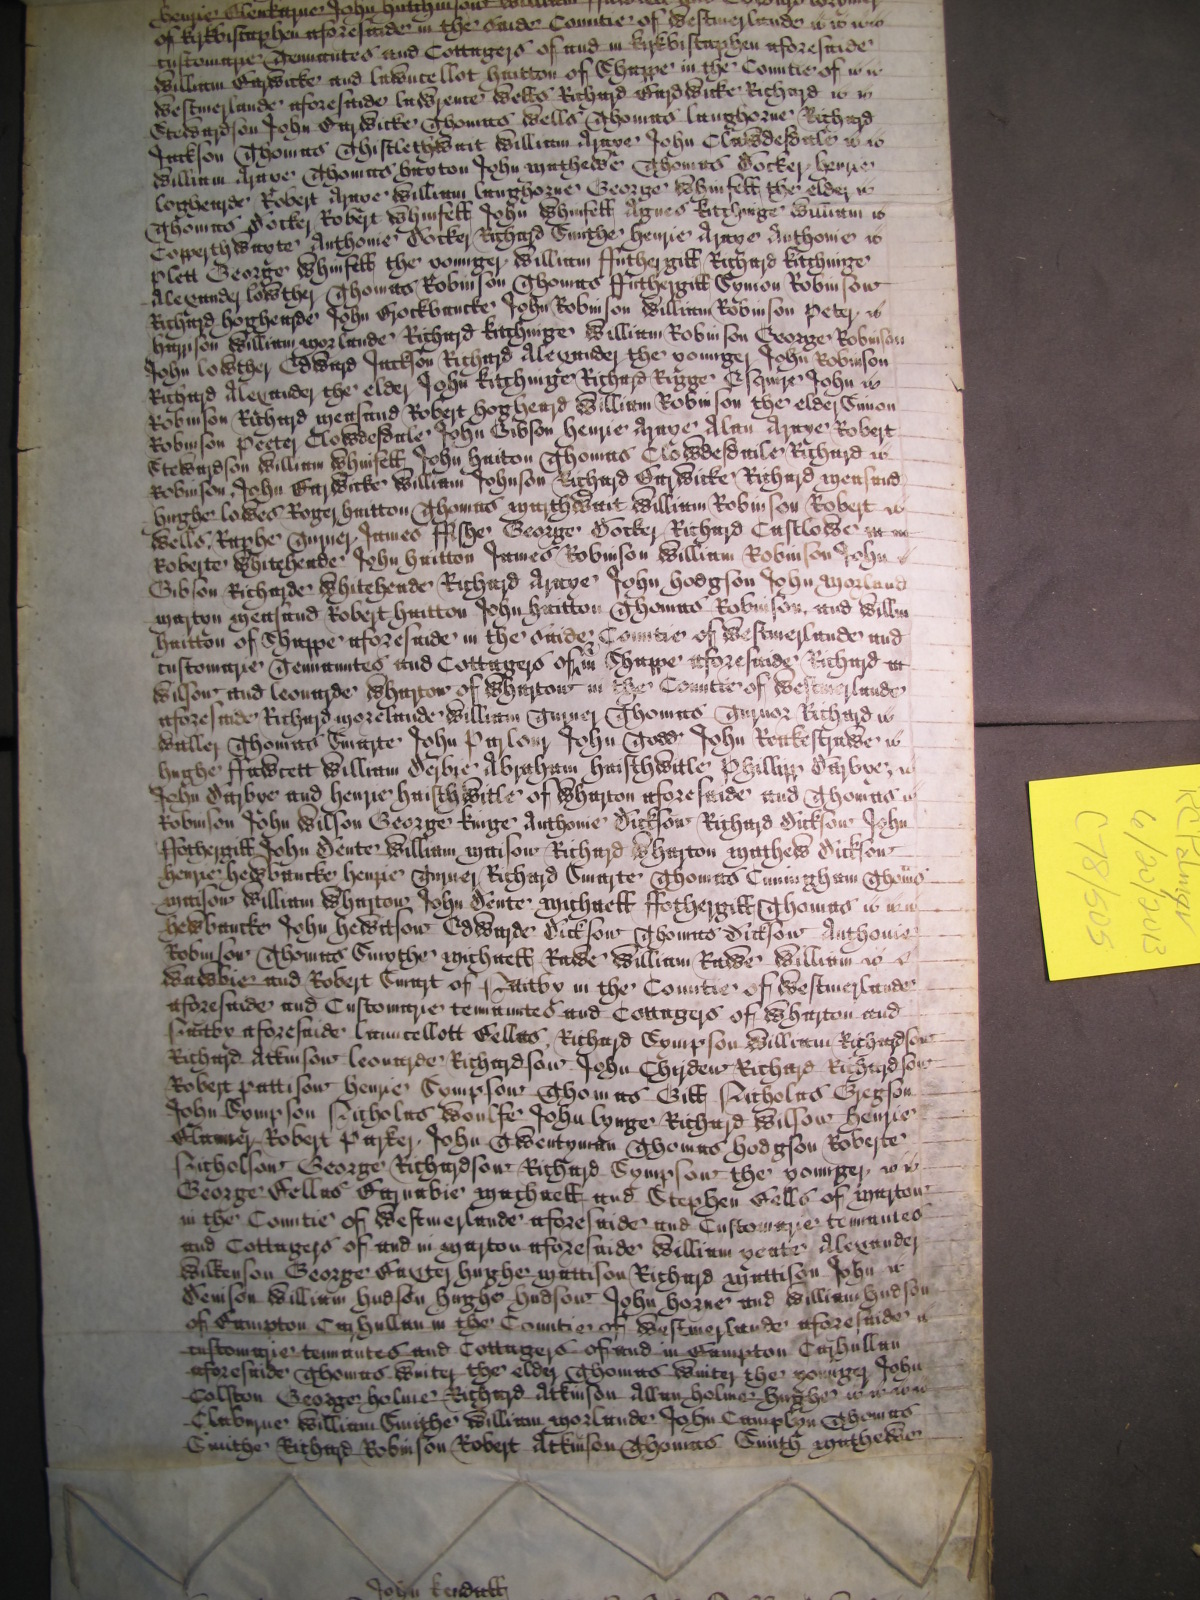 henrie Glenkarne John hutchinson William
of Kirkbiestaphen aforesaide in the saide Countie of Westmerlande
customarie Tennauntes and Cottagers of and in Kirkbiestaphen aforesaide
William Barwicke and Lawncellot haitton of Shappe in the Countie of
Westmerlande aforesaide Lawrence Wells Richard Bardwicke Richard
Stewardson John Barwicke Thomas Wells Thomas Langhorne Richard
Jackson Thomas Thistlethwait William Araye John Clowdesdale
William Araye Thomas hayton John Mathewe Thomas Docker henrie
Loghearde Robert Araye William Langhorne George Whinfell the elder
Thomas Docker Robert Whinfell John Whinfell Agnes Kitchinge William
Copperthwayte Anthonie Docker Richard Smithe henrie Araye Anthonie
Plett George Whinfell the younger William ffothergill Richard Kitchinge
Alexander Lowther Thomas Robinson Thomas ffothergill Symon Robinson
Richard hoghearde John Brockbancke John Robinson William Robinson Peter
harrison William Morlande Richard Kitchinge William Robinson George Robinson
John Lowther Edward Jackson Richard Alexander the younger John Robinson
Richard Alexander the elder John Kitchinge Richard Rigge Esquire John
Robinson Richard Measand Robert hogheard William Robinson the elder Simon
Robinson Peeter Clowdesdale John Gibson henrie Araye Alan Araye Robert
Stewardson William Whinfell John haiton Thomas Clowdesdaile Richard
Robinson John Barwicke William Johnson Richard Barwicke Richard Measand
hughe Lowes Roger haitton Thomas Marthwait William Robinson Robert
Wells Raphe Turner James ffishe George Docker Richard Castlowe
Roberte Whiteheade John haitton James Robinson William Robinson John
Gibson Richarde Whiteheade Richard Araye John Hodgson John Morland
Marton Measand Robert haitton John haitton Thomas Robinson and Willm
haitton of Shappe aforesaide in the saide Countie of Westmerlande and
customarie Tennauntes and Cottagers of in Shappe aforesaide Richard
Wilson and Leonarde Wharton of Wharton in the Countie of Westmerlande
aforesaide Richard Morelande William Turner Thomas Turnor Richard
Waller Thomas Smarte John Parlour John Todd John Reakestrawe
hughe ffawcett William Derbie Abraham haisthwitle Phillipp Darbye
John Darbye and henrie haisthwitle of Wharton aforesaide and Thomas
Robinson John Wilson George Kinge Anthonie Dickson Richard Dickson John
ffothergill John Dente William Maison Richard Wharton Mathew Dickson
henrie hewbancke henrie Turner Richard Smarte Thomas Cuningham Thomas
Maison William Wharton John Dente Michaell ffothergill Thomas
hewbancke John hewitson Edwarde Dickson Thomas Dickson Anthonie
Robinson Thomas Smythe Michaell Rawe William Rawe William
Wawbie and Robert Smart of Naitby in the Countie of Westmerlande
aforesaide and Customarie tennauntes and Cottagers of Wharton and
Naitby aforesaide Launcellott Fellas Richard Sympson William Richardson
Richard Atkinson Leonarde Richardson John Chirden Richard Richardson
Robert Pattison henrie Sympson Thomas Gill Nicholas Gregson
John Sympson Nicholas Woulfe John Lynge Richard Wilson henrie
Robert Parker John Twentyman Thomas hodgson Roberte
Nicholson George Richardson Richard Sympson the younger
George Fellas Barnabie Machaell and Stephen Fells of Marton
in the Countie of Westmerlande aforesaide and Customarie tennantes
and Cottagers of and in Marton aforesaide William Yeate Alexander
Wilkenson George Baxter hughe Mattison Richard Mattison John
Denison William hudson hughe hudson John horne and William hudson
of Bampton Carhullan in the Countie of Westmerlande aforesaide
customarie tennantes and Cottagers of and in Bampton Carhullan
aforesaide Thomas Writer the elder Thomas Writer the younger John
Colston George holme Richard Atkinson Allan holme hughe
Claburne William Smithe William Morlande John Camplyn Thomas
Smithe Richard Robinson Robert Atkinson Thomas Smith Mathewe
John Kendall
6/20/2013
C78/505